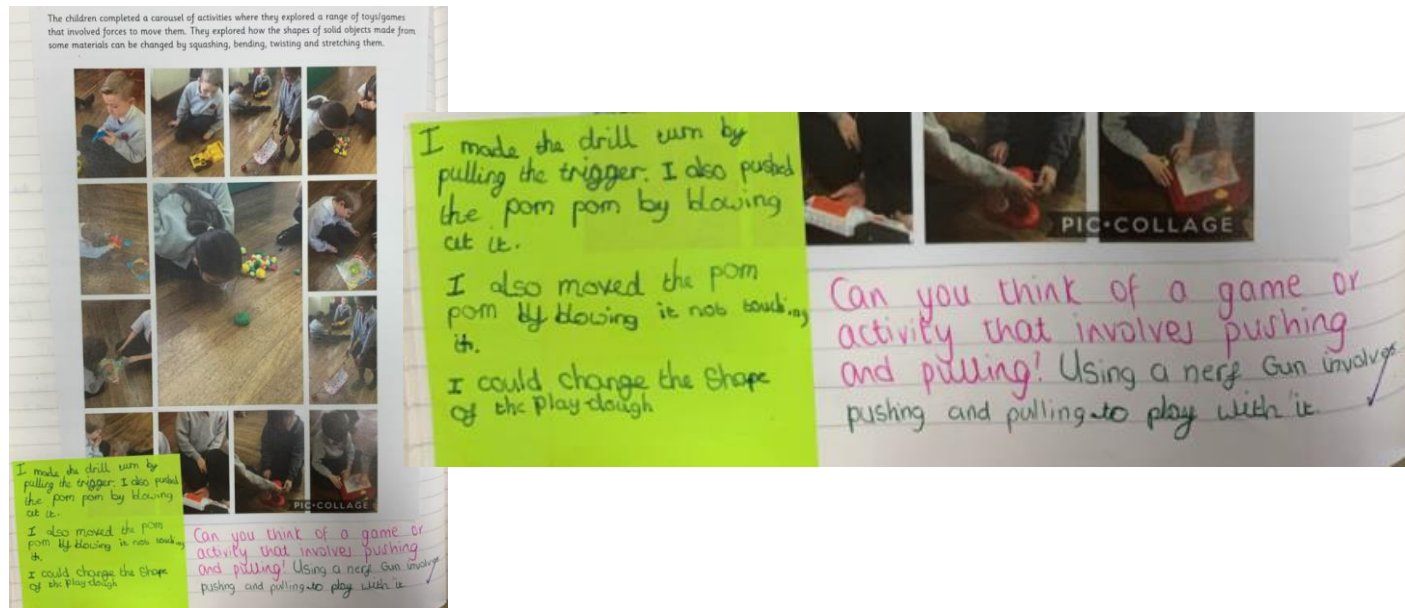 The children completed a carousel of activities where they explored a range of toys/games
that involved forces to move them. They explored how the shapes of solid objects made from
some materials can be changed by squashing, bending, twisting and stretching them.
PIC•COLLAGE
I made the drill turn by
pulling the trigger. I also pushed
the pom pom by blowing
at it.
I also moved the pom
pom by blowing it not touching
it.
I could change the Shape
of the Play-dough
Can you think of a game or
activity that involves pushing
and pulling! Using a nerf Gun involves
pushing and pulling to play with it
I made the drill turn by
pulling the trigger. I also pushed
the pom pom by blowing
at it.
I also moved the pom
pom by blowing it not touching
it.
I could change the Shape
of the Play-dough
PIC•COLLAGE
Can you think of a game or
activity that involves pushing
and pulling! Using a nerf Gun involves
pushing and pulling to play with it.